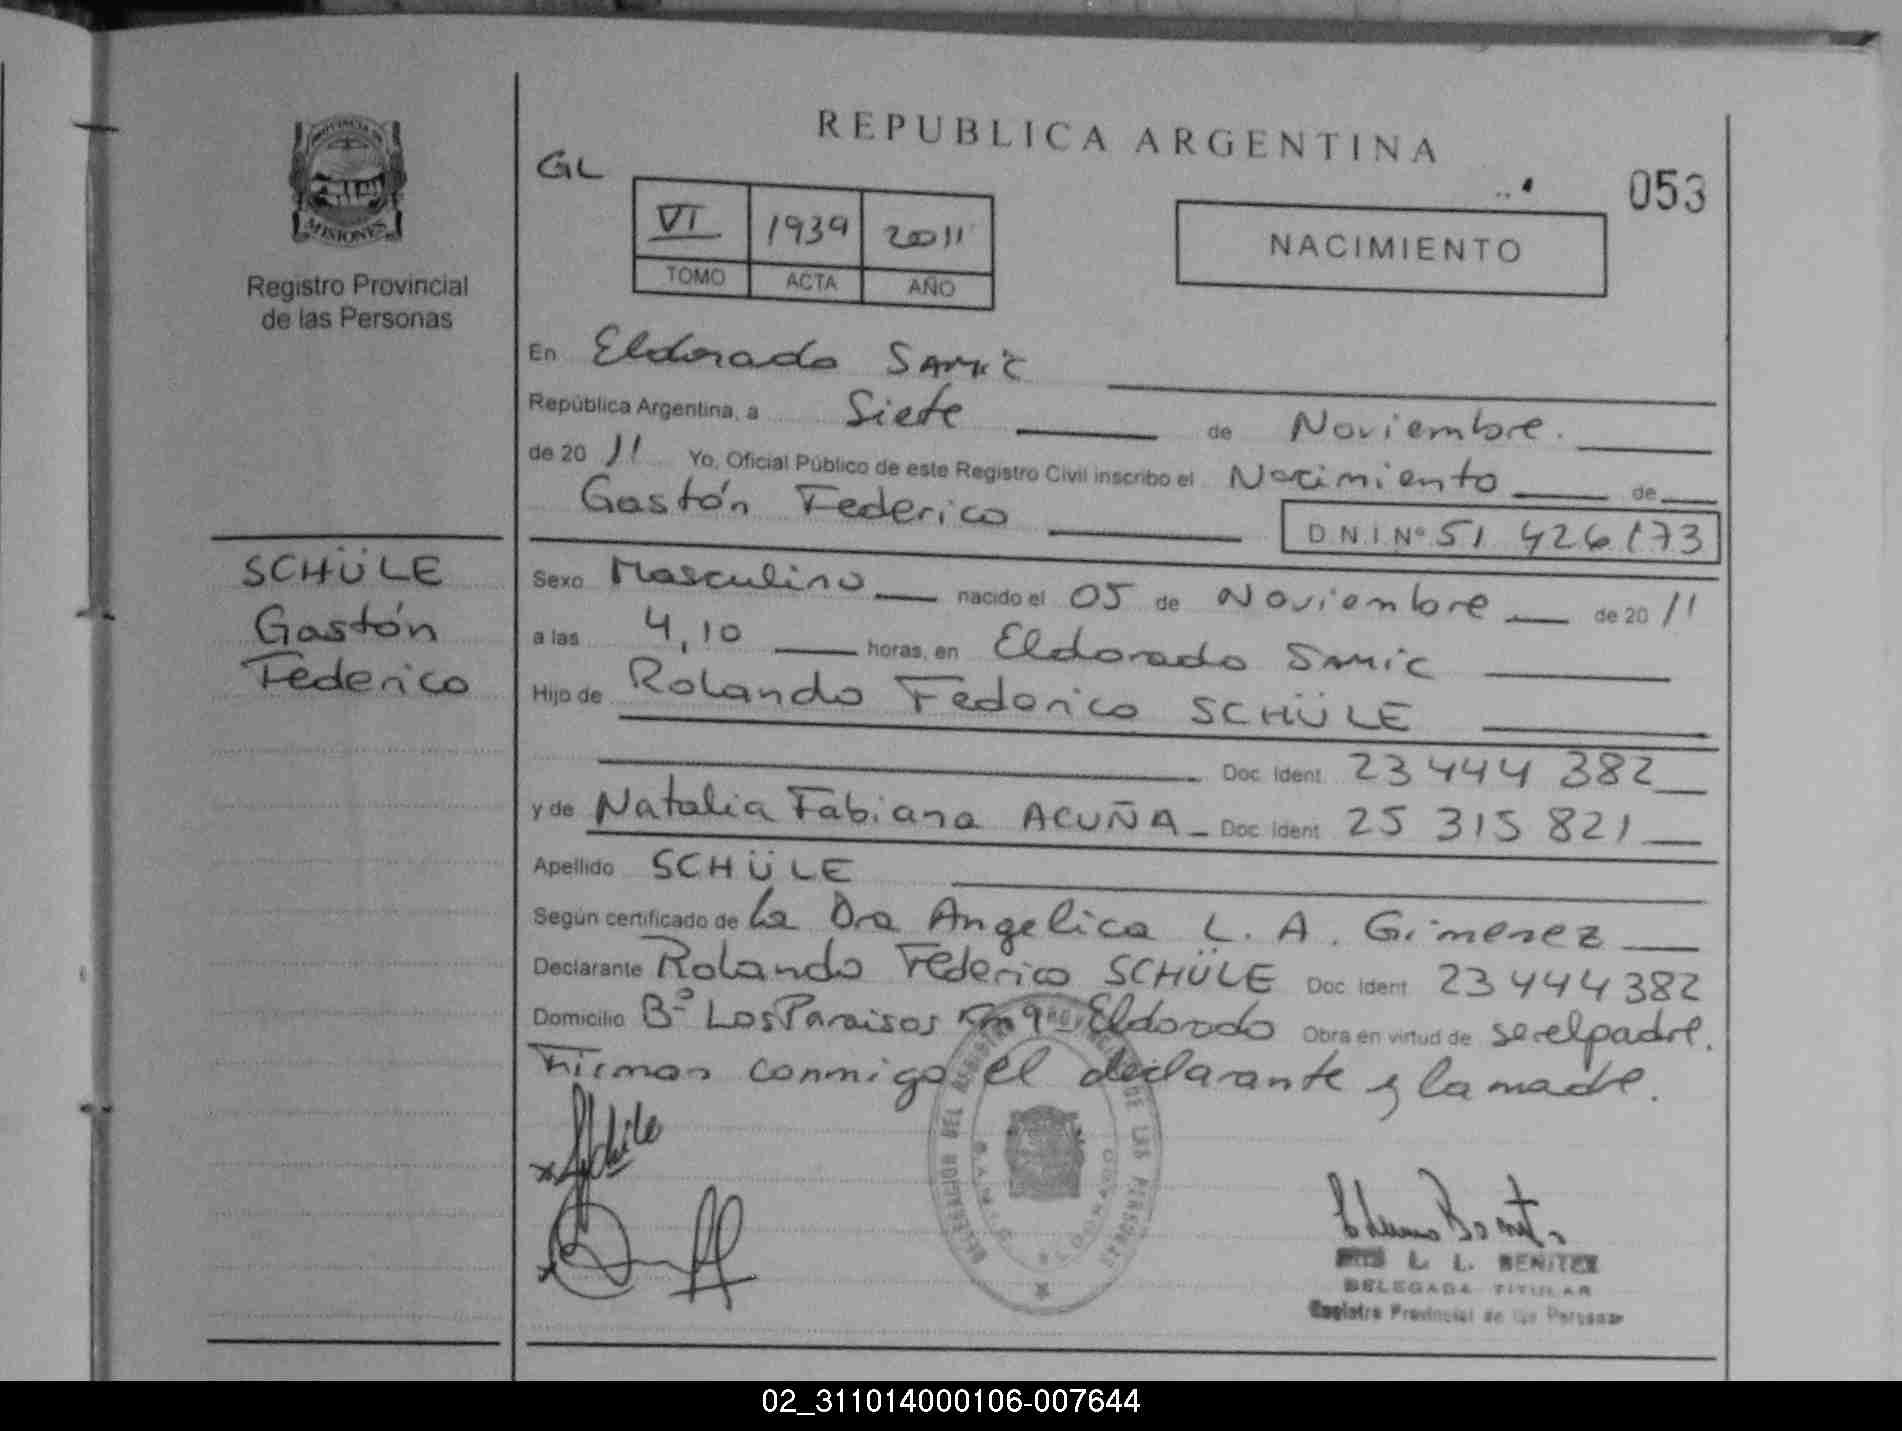 REPUBLICA ARGENTINA
PROVINCIA DE
MISIONES
Registro Provincial
de las Personas
GL
053
VI 1939 2011
TOMO ACTA AÑO
NACIMIENTO
En Eldorado SAMIC
República Argentina, a Siete de Noviembre.
de 20 11 Yo, Oficial Público de este Registro Civil inscribo el Nacimiento de
Gastón Federico
D.N.I.Nº 51 426 173
SCHÜLE
Gastón
Federico
Sexo Masculino nacido el 05 de Noviembre de 20 11
a las 4,10 horas, en Eldorado SAMIC
Hijo de Rolando Federico SCHÜLE
Doc. Ident. 23 444 382
y de Natalia Fabiana ACUÑA Doc. Ident. 25 315 821
Apellido SCHÜLE
Según certificado de La Dra Angelica L. A. Gimenez
Declarante Rolando Federico SCHÜLE Doc. Ident. 23 444 382
Domicilio Bº Los Paraisos Km 9 - Eldorado Obra en virtud de ser el padre.
Firman conmigo el declarante y la madre.
DELEGACION DEL REGISTRO PROVINCIAL DE LAS PERSONAS
ELDORADO
L. L. BENITEZ
DELEGADA TITULAR
Registro Provincial de las Personas
02_311014000106-007644